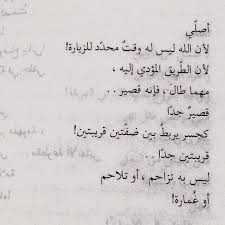 أصلّي
لأن الله ليس له وقتٌ محدّد للزيارة!
لأن الطّريق المؤدي إليه ،
مهما طالَ ، فإنه قصير . .
قصيرٌ جدّا
كجسر يربطُ بين ضفّتين قريبتين!
قريبتين جدّا . .
ليس به تزاحم ، أو تلاحم
أو غُمارة!